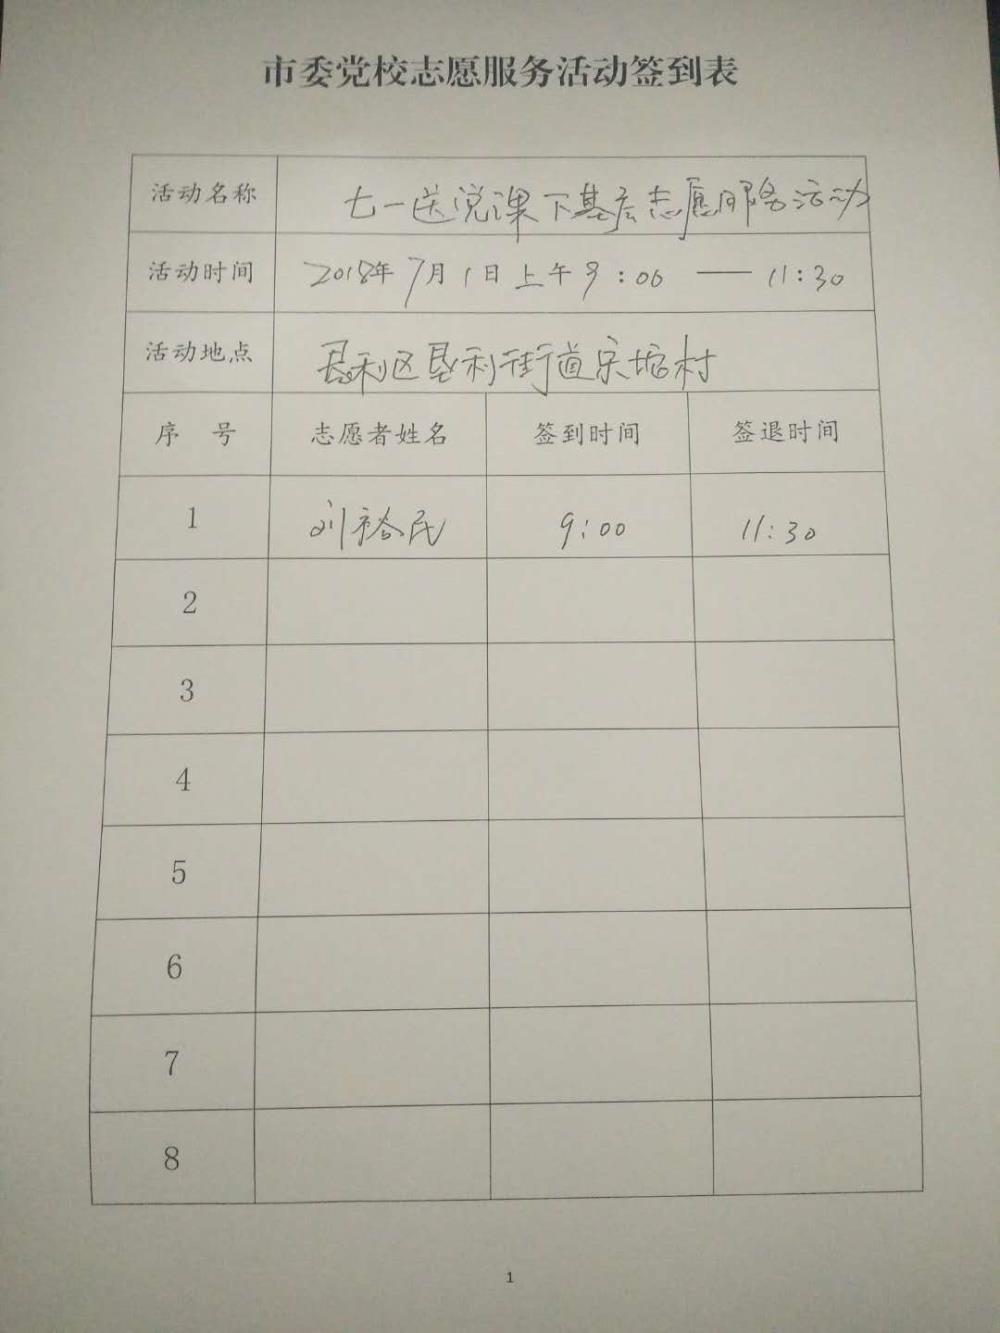 市委党校志愿服务活动签到表
活动名称 七一送说课下基层志愿服务活动
活动时间 2018年7月1日上午9:00 — 11:30
活动地点 垦利区垦利街道宋坨村
序 号 志愿者姓名 签到时间 签退时间
1 刘裕民 9:00 11:30
2
3
4
5
6
7
8
1